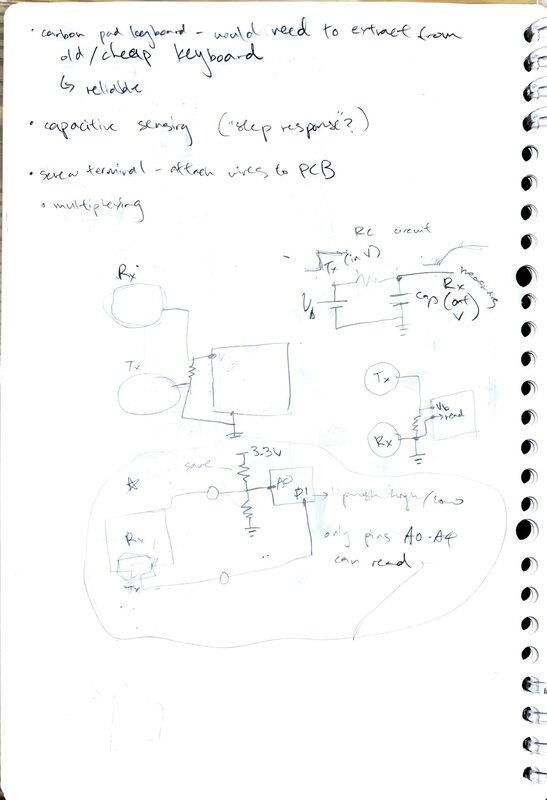 • carbon pad keyboard - would need to extract from
old/cheap keyboard
↳ reliable
• capacitive sensing ("step response"?)
• screw terminal - attach wires to PCB
• multiplexing
RC circuit
Tx (in V)
Rx
cap (out V)
Rx
Tx
Tx
Rx
Vb
read
3.3V
A0
D1 → push high/low
only pins A0-A4
can read
Rx
Tx